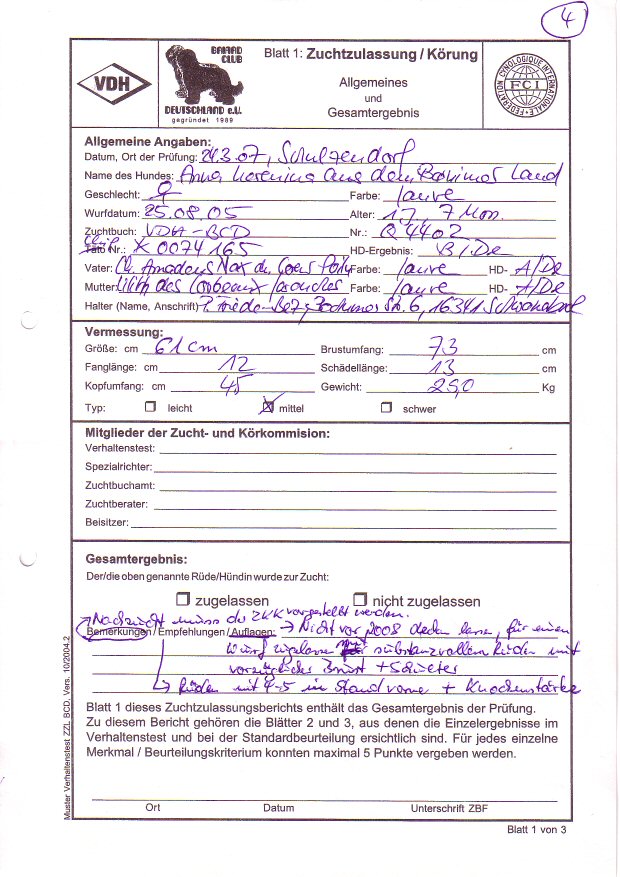 4
VDH
BRIARD CLUB
DEUTSCHLAND e.V.
gegründet 1989
Blatt 1: Zuchtzulassung / Körung
Allgemeines
und
Gesamtergebnis
FEDERATION CYNOLOGIQUE INTERNATIONALE
FCI
Allgemeine Angaben:
Datum, Ort der Prüfung: 24.3.07, Schulzendorf
Name des Hundes: Anna Lorenina aus dem Land
Geschlecht: ♀ Farbe: fauve
Wurfdatum: 25.08.05 Alter: 1 J, 7 Mon.
Zuchtbuch: VDH-BCD Nr.: Q 4402
Chip Täto Nr.: X 0074165 HD-Ergebnis: B1De
Vater: Ch. Amadeus du Farbe: fauve HD- A/De
Mutter: Lilith des Corbeaux Farbe: fauve HD- A/De
Halter (Name, Anschrift): P. Str. 6, 16341
Vermessung:
Größe: cm 61 cm Brustumfang: 73 cm
Fanglänge: cm 12 Schädellänge: 13 cm
Kopfumfang: cm 45 Gewicht: 25,0 Kg
Typ: leicht mittel schwer
Mitglieder der Zucht- und Körkommision:
Verhaltenstest:
Spezialrichter:
Zuchtbuchamt:
Zuchtberater:
Beisitzer:
Gesamtergebnis:
Der/die oben genannte Rüde/Hündin wurde zur Zucht:
zugelassen nicht zugelassen
Nachzucht muss der ZKK vorgestellt werden.
Bemerkungen / Empfehlungen / Auflagen: → Nicht vor 2008 decken lassen, für einen
Wurf zugelassen substanzvollen Rüden mit
vorzüglicher Brust +
→ Rüden mit 4-5 in Stand vorne + Knochenstärke
Blatt 1 dieses Zuchtzulassungsberichts enthält das Gesamtergebnis der Prüfung.
Zu diesem Bericht gehören die Blätter 2 und 3, aus denen die Einzelergebnisse im
Verhaltenstest und bei der Standardbeurteilung ersichtlich sind. Für jedes einzelne
Merkmal / Beurteilungskriterium konnten maximal 5 Punkte vergeben werden.
Ort Datum Unterschrift ZBF
Muster Verhaltenstest ZZL BCD, Vers. 10/2004.2
Blatt 1 von 3